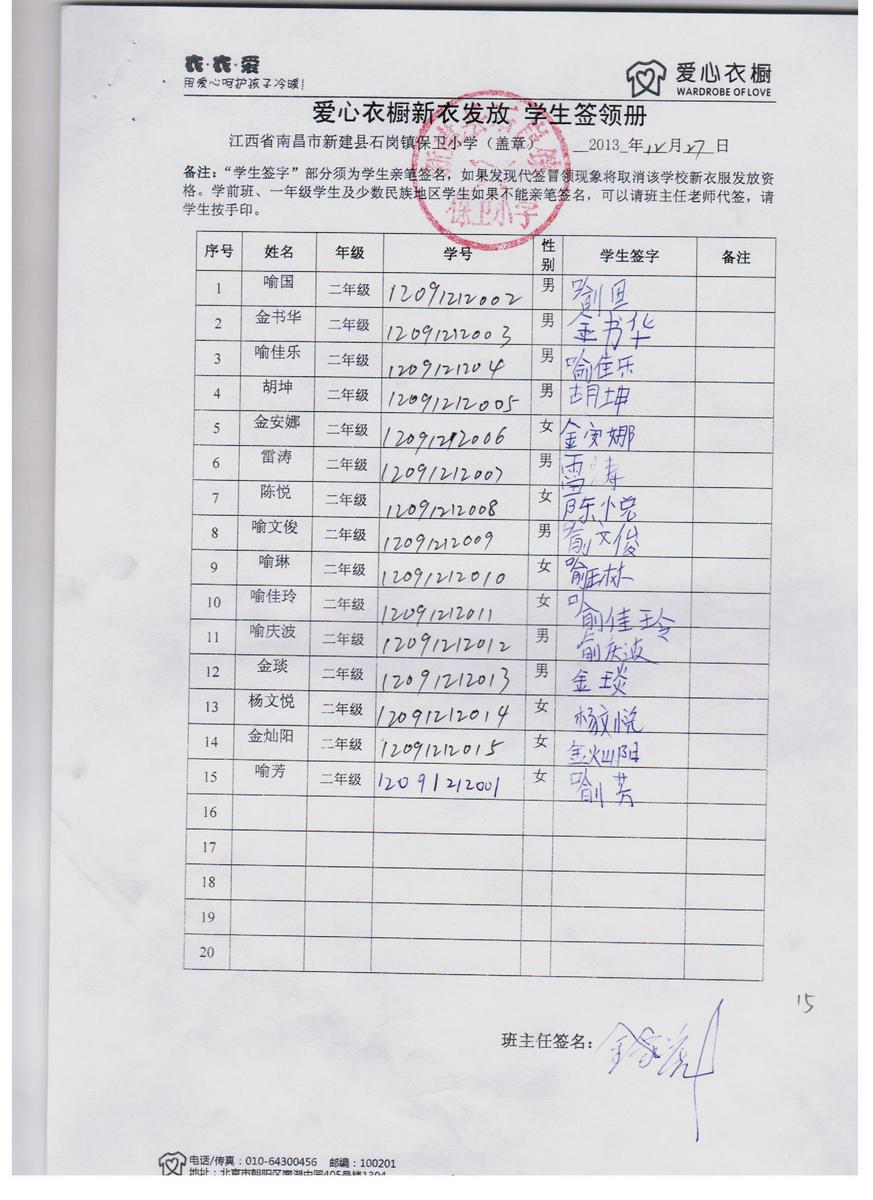 衣·衣·爱
用爱心呵护孩子冷暖!
爱心衣橱
WARDROBE OF LOVE
爱心衣橱新衣发放 学生签领册
江西省南昌市新建县石岗镇保卫小学（盖章） 2013 年 12 月 27 日
保卫小学
备注：“学生签字”部分须为学生亲笔签名，如果发现代签冒领现象将取消该学校新衣服发放资
格。学前班、一年级学生及少数民族地区学生如果不能亲笔签名，可以请班主任老师代签，请
学生按手印。
序号 姓名 年级 学号 性别 学生签字 备注
1 喻国 二年级 12091212002 男 喻国
2 金书华 二年级 12091212003 男 金书华
3 喻佳乐 二年级 1209121204 男 喻佳乐
4 胡坤 二年级 12091212005 男 胡坤
5 金安娜 二年级 12091212006 女 金安娜
6 雷涛 二年级 12091212007 男 雷涛
7 陈悦 二年级 12091212008 女 陈悦
8 喻文俊 二年级 12091212009 男 喻文俊
9 喻琳 二年级 12091212010 女 喻琳
10 喻佳玲 二年级 12091212011 女 喻佳玲
11 喻庆波 二年级 12091212012 男 俞庆波
12 金琰 二年级 12091212013 男 金琰
13 杨文悦 二年级 12091212014 女 杨文悦
14 金灿阳 二年级 12091212015 女 金灿阳
15 喻芳 二年级 12091212001 女 喻芳
16
17
18
19
20
15
班主任签名：
电话/传真：010-64300456 邮编：100201
地址：北京市朝阳区南湖中园405号楼1304